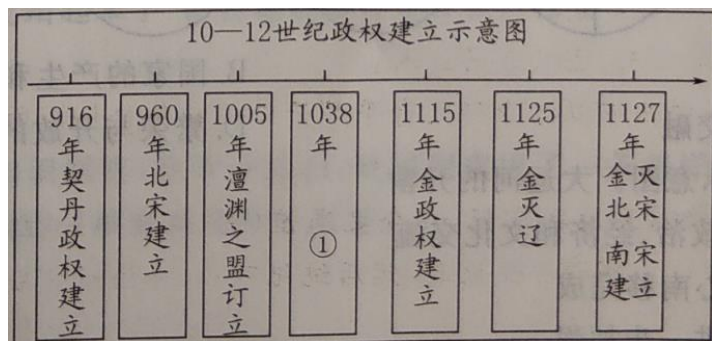 10—12世纪政权建立示意图
916年契丹政权建立
960年北宋建立
1005年澶渊之盟订立
1038年 ①
1115年金政权建立
1125年金灭辽
1127年金灭北宋 南宋建立